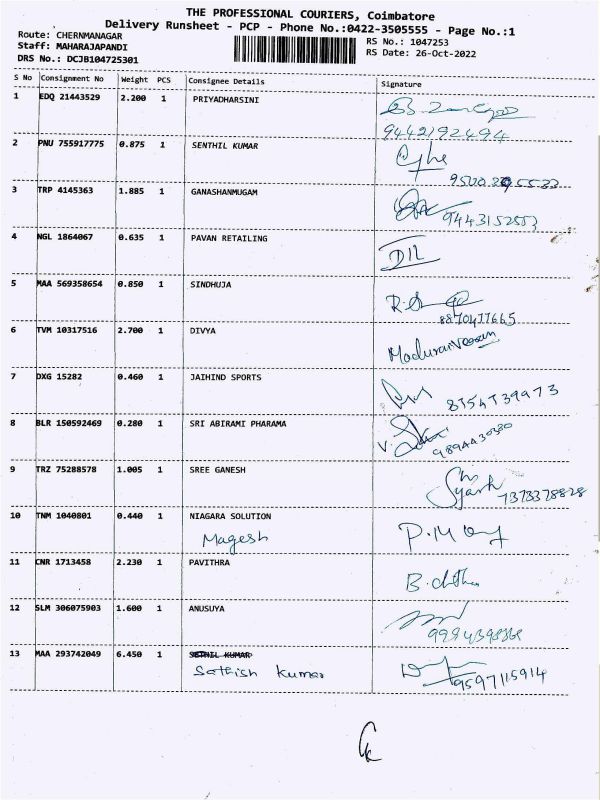 THE PROFESSIONAL COURIERS, Coimbatore
Delivery Runsheet - PCP - Phone No.:0422-3505555 - Page No.:1
Route: CHERNMANAGAR
Staff: MAHARAJAPANDI
DRS No.: DCJB104725301
RS No.: 1047253
RS Date: 26-Oct-2022
S No Consignment No Weight PCS Consignee Details Signature
1 EDQ 21443529 2.200 1 PRIYADHARSINI
9442192494
2 PNU 755917775 0.875 1 SENTHIL KUMAR
3 TRP 4145363 1.885 1 GANASHANMUGAM
9443152553
4 NGL 1864067 0.635 1 PAVAN RETAILING
5 MAA 569358654 0.850 1 SINDHUJA
8870417665
6 TVM 10317516 2.700 1 DIVYA
Maduraiveeran
7 DXG 15282 0.460 1 JAIHIND SPORTS
8754739973
8 BLR 150592469 0.280 1 SRI ABIRAMI PHARAMA
9894430380
9 TRZ 75288578 1.005 1 SREE GANESH
7373378828
10 TNM 1040801 0.440 1 NIAGARA SOLUTION
Magesh
11 CNR 1713458 2.230 1 PAVITHRA
12 SLM 306075903 1.600 1 ANUSUYA
9994398368
13 MAA 293742049 6.450 1
Sathish Kumar
9597115914